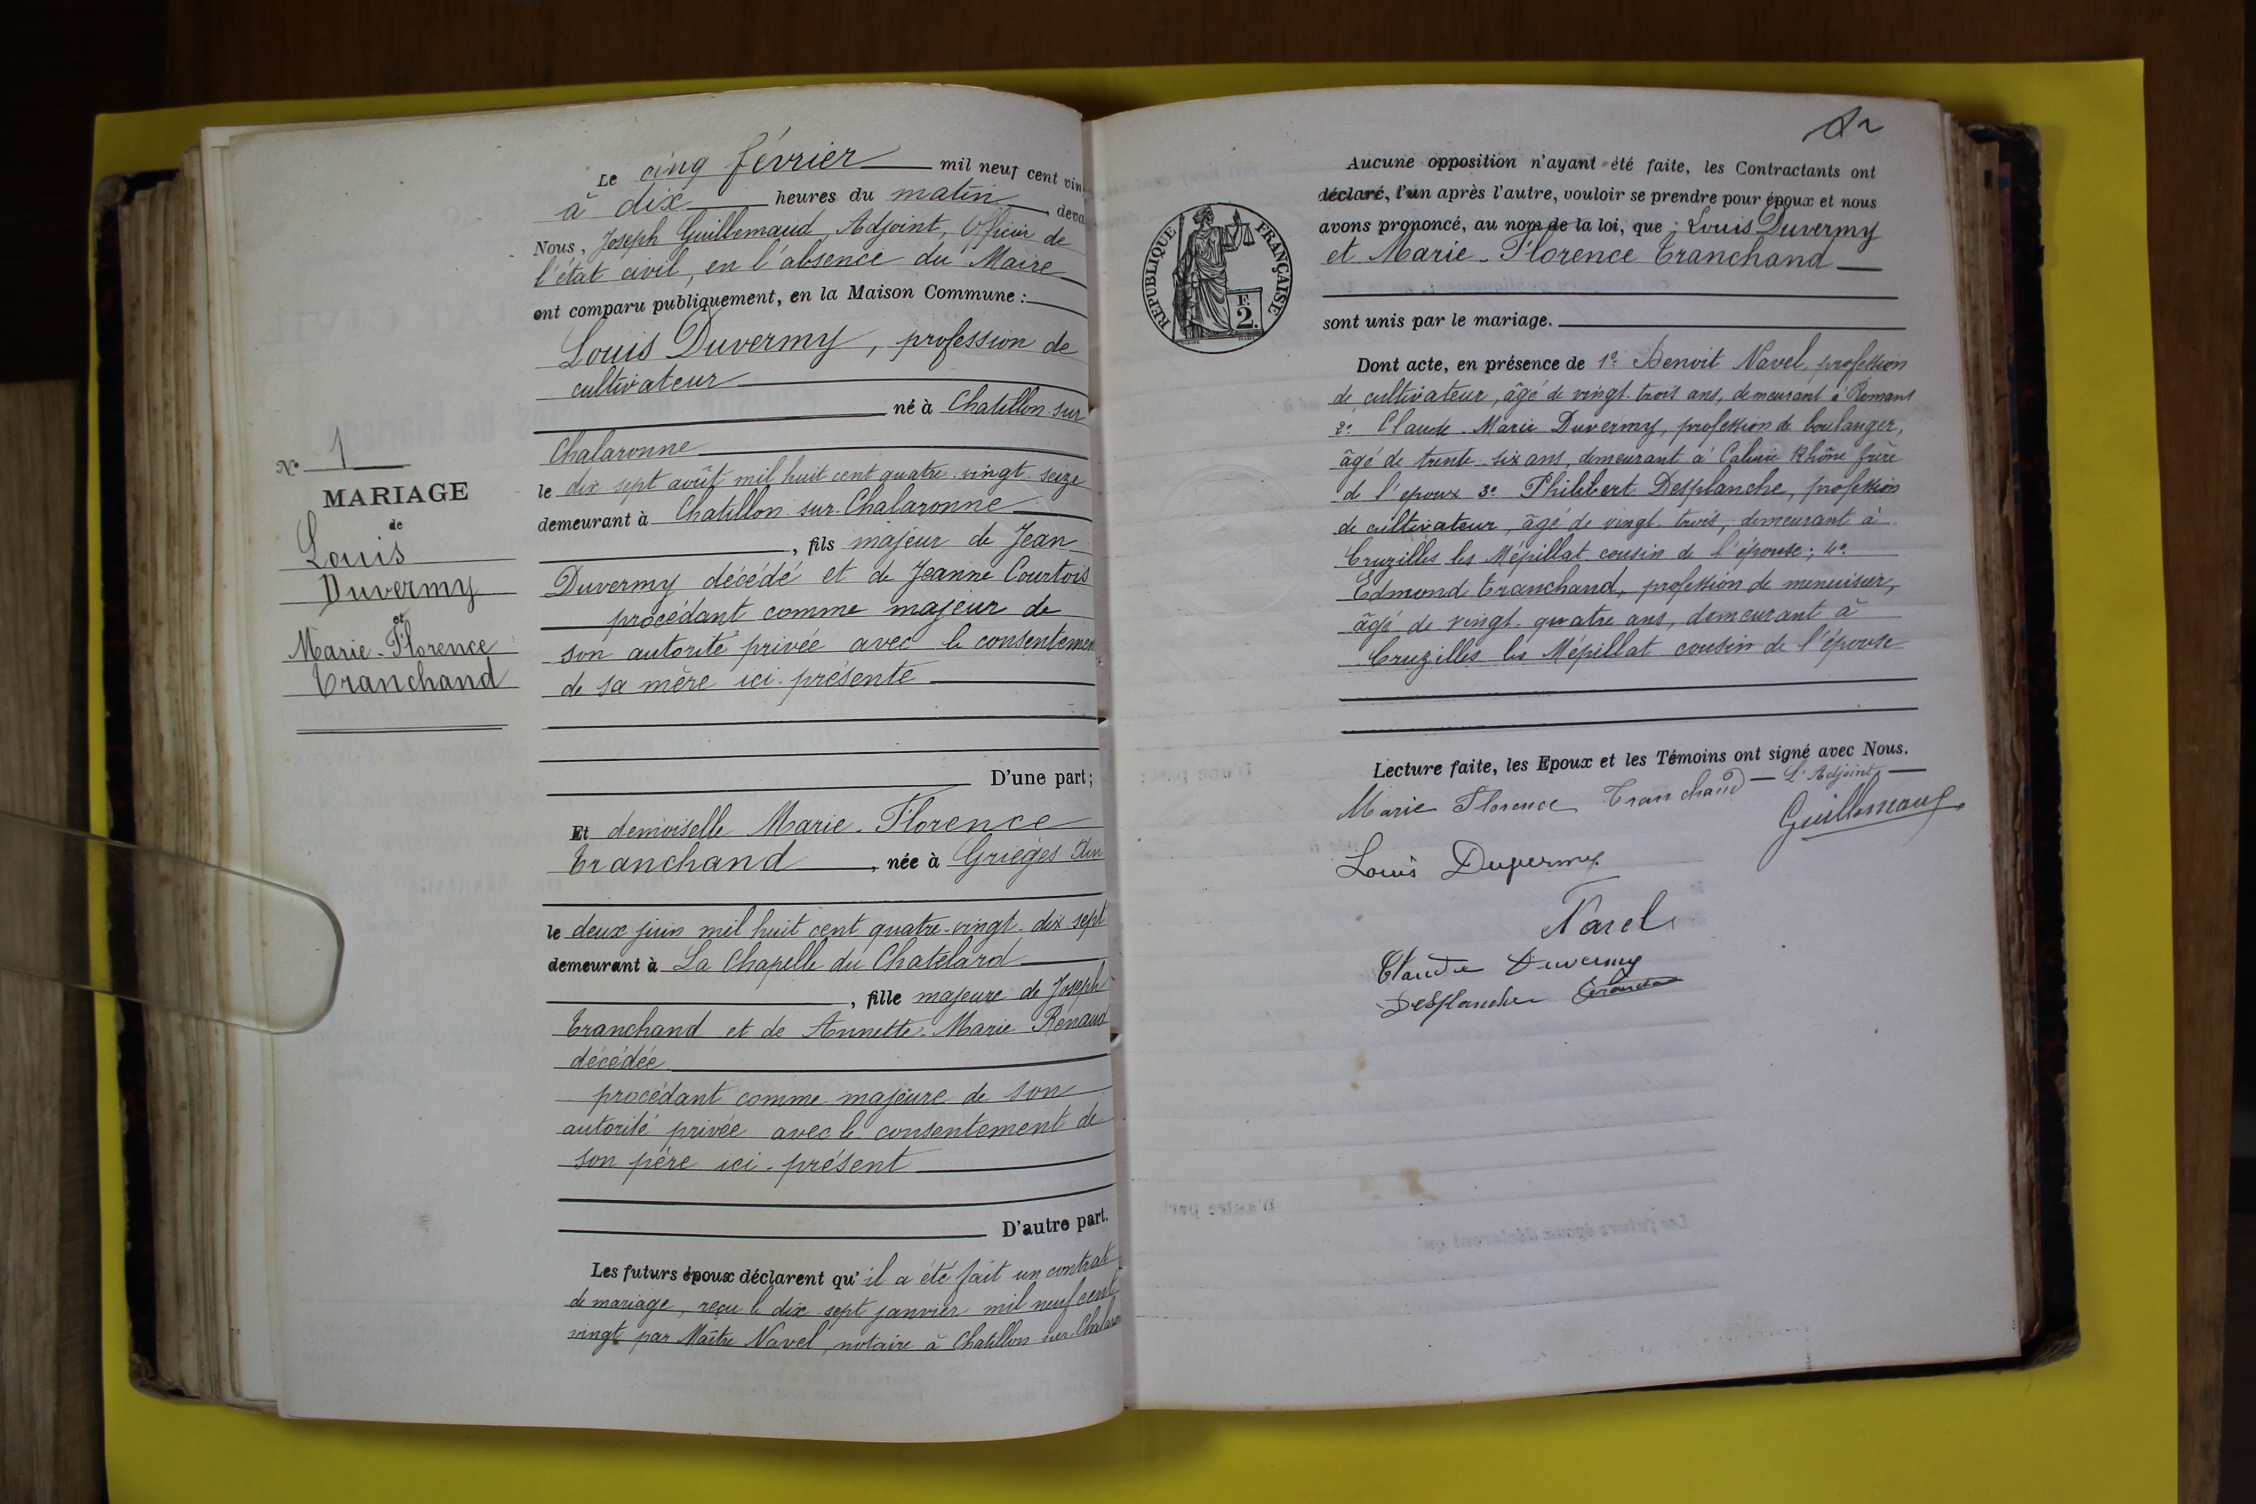 Le cinq février mil neuf cent vin
à dix heures du matin, deva
Nous, Joseph Guillemaud, Adjoint, Officier de
l'état civil, en l'absence du Maire
ont comparu publiquement, en la Maison Commune :
Louis Duvermy, profession de
cultivateur
né à Chatillon sur
Chalaronne
le dix sept août mil huit cent quatre-vingt-seize
demeurant à Chatillon-sur-Chalaronne
, fils majeur de Jean
Duvermy décédé et de Jeanne Courtois
procédant comme majeur de
son autorité privée avec le consentemen
de sa mère ici-présente
D'une part;
Et demoiselle Marie-Florence
Tranchand, née à Griéges Ain
le deux juin mil huit cent quatre-vingt-dix sept
demeurant à La Chapelle du Chatelard
, fille majeure de Joseph
Tranchand et de Annette-Marie Renaud
décédée
procédant comme majeure de son
autorité privée avec le consentement de
son père ici-présent
D'autre part.
Les futurs époux déclarent qu'il a été fait un contrat
de mariage, reçu le dix sept janvier mil neuf cent
vingt par Maître Navel, notaire à Chatillon sur Chalaron
N° 1
MARIAGE
de
Louis
Duvermy
et
Marie-Florence
Tranchand
Aucune opposition n'ayant été faite, les Contractants ont
déclaré, l'un après l'autre, vouloir se prendre pour époux et nous
avons prononcé, au nom de la loi, que : Louis Duvermy
et Marie-Florence Tranchand
sont unis par le mariage.
RÉPUBLIQUE FRANÇAISE
F.
2.
Dont acte, en présence de 1°. Benoit Navel, profession
de cultivateur, âgé de vingt-trois ans, demeurant à Romans
2°. Claude-Marie Duvermy, profession de boulanger,
âgé de trente-six ans, demeurant à Caluire Rhône frère
de l'époux 3° Philibert Desplanche, profession
de cultivateur, âgé de vingt-trois, demeurant à
Cruzilles les Mépillat cousin de l'épouse; 4°.
Edmond Tranchand, profession de menuisier,
âgé de vingt-quatre ans, demeurant à
Cruzilles les Mépillat cousin de l'épouse
Lecture faite, les Epoux et les Témoins ont signé avec Nous.
Marie Florence Tranchand L'Adjoint
Guillemaud
Louis Duvermy
Navel
Claude Duvermy
Desplanche